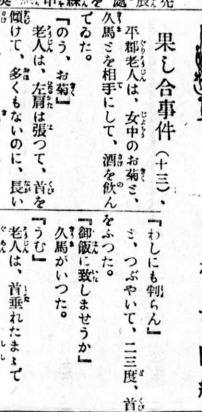 果し合事件（十三）、
平郡老人は、女中のお菊と、
久馬とを相手にして、酒を飲ん
でゐた。
『のう、お菊』
老人は、左肩は張つて、首を
傾けて、多くもないのに、長い
『わしにも判らん』
と、つぶやいて、二三度、首
をふつた。
『御飯に致しませうか』
久馬がいつた。
『うむ』
老人は、首垂れたまゝで